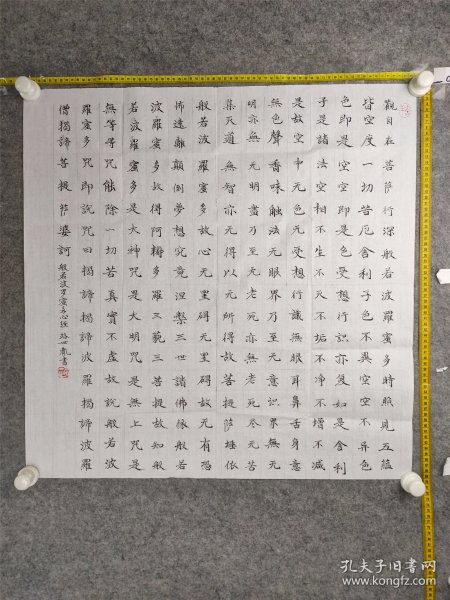 觀自在菩薩行深般若波羅蜜多時照見五蘊
皆空度一切苦厄舍利子色不異空空不异色
色即是空空即是色受想行識亦復如是舍利
子是諸法空相不生不灭不垢不净不增不减
是故空中无色无受想行識無眼耳鼻舌身意
無色聲香味觸法无眼界乃至无意識界無无
明亦無无明盡乃至无老死亦無老死尽无苦
集灭道無智亦无得以无所得故菩提萨埵依
般若波羅蜜多故心无罣碍无罣碍故无有恐
怖遠離顛倒夢想究竟涅槃三世諸佛依般若
波羅蜜多故得阿耨多羅三藐三菩提故知般
若波羅蜜多是大神咒是大明咒是無上咒是
無等等咒能除一切苦真實不虚故說般若波
羅蜜多咒即說咒曰揭諦揭諦波羅揭諦波羅
僧揭諦菩提萨婆訶 般若波罗蜜多心经 書
孔夫子旧书网
www.kongfz.com